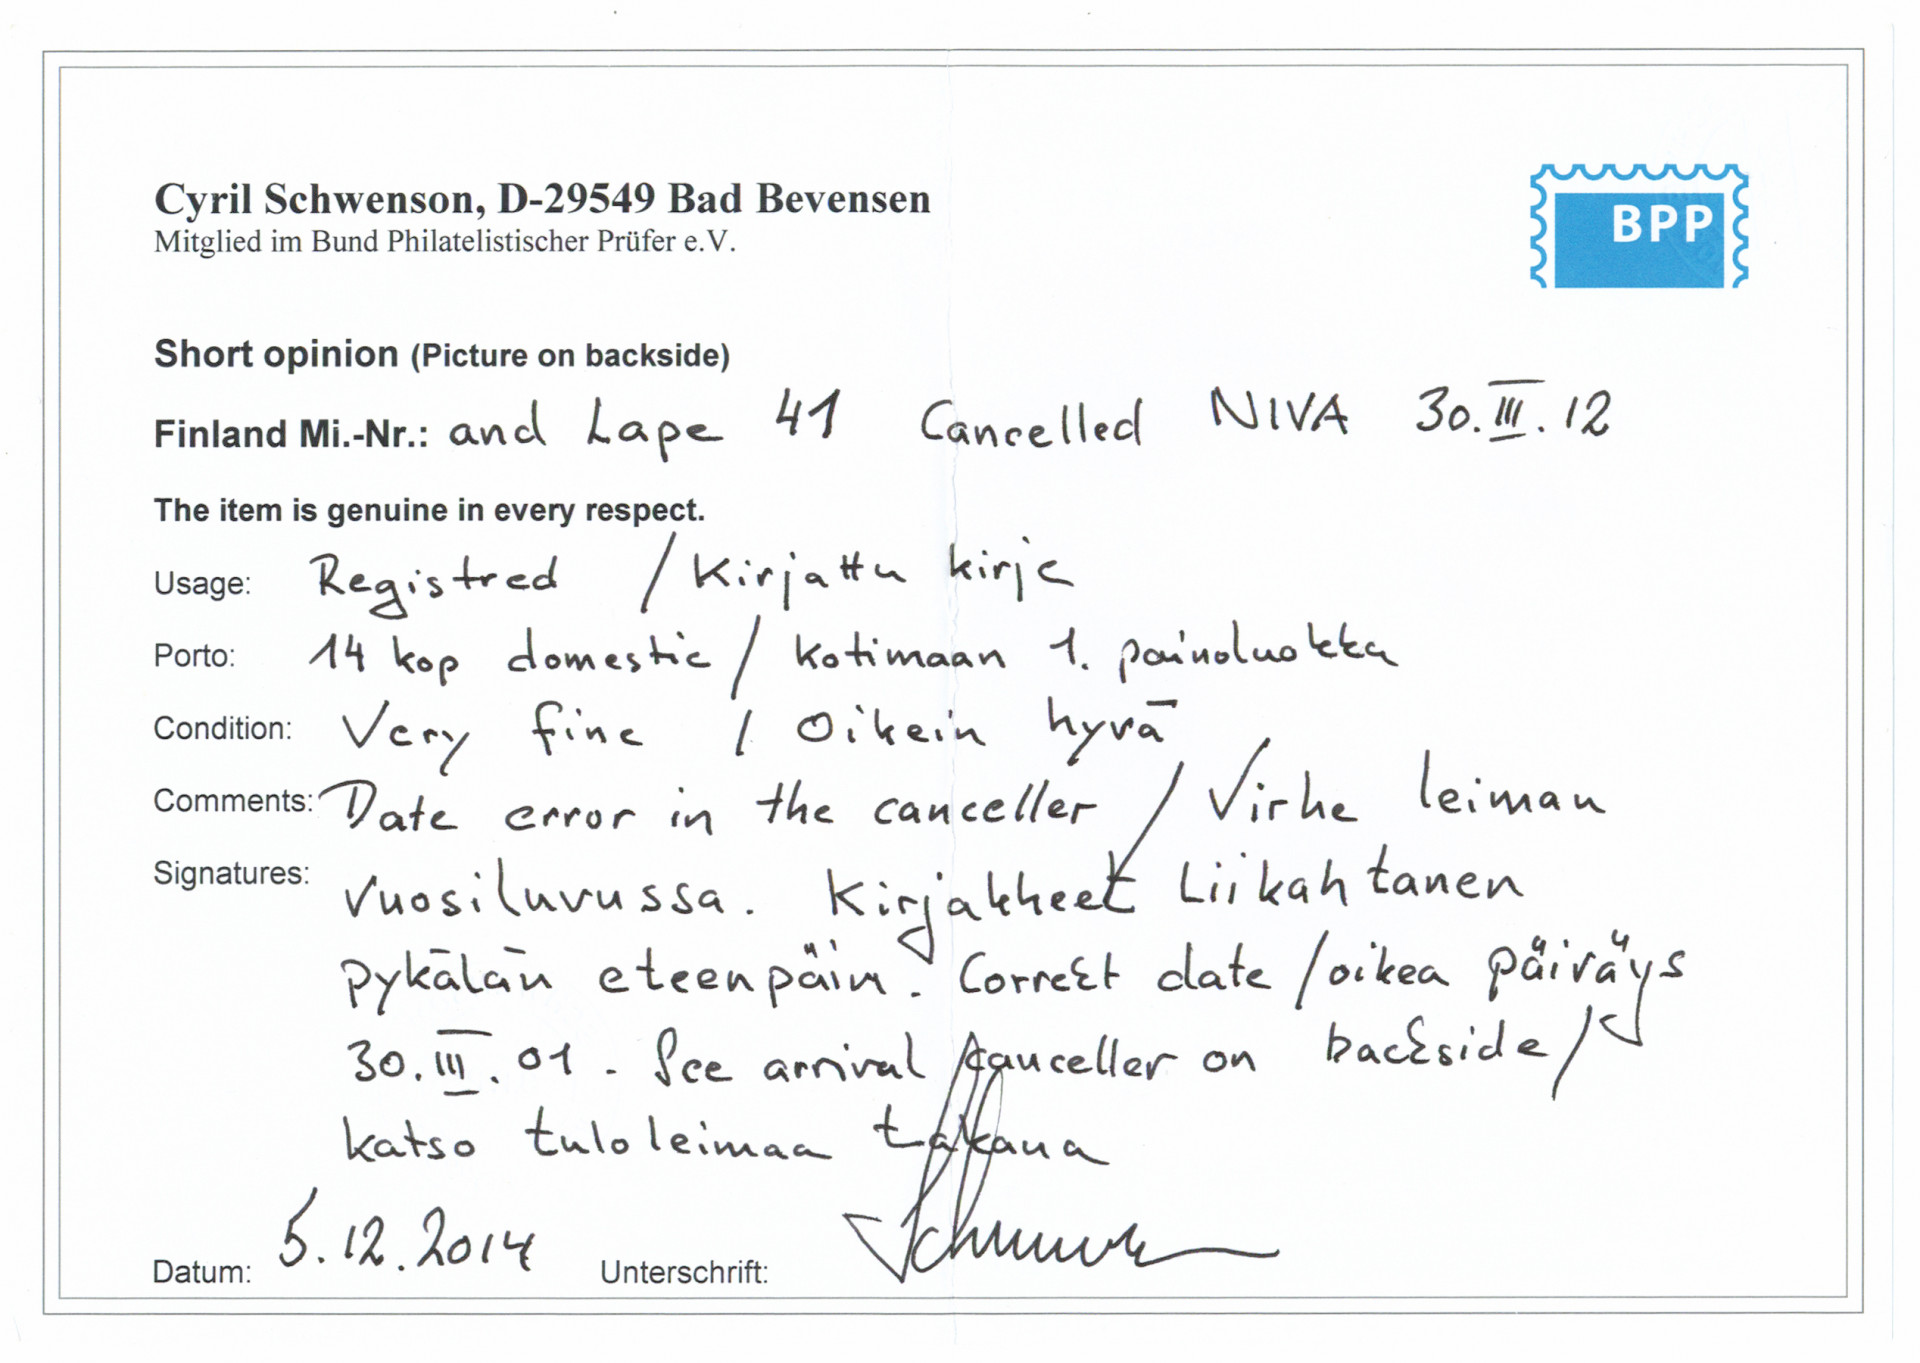 Cyril Schwenson, D-29549 Bad Bevensen
Mitglied im Bund Philatelistischer Prüfer e.V.
BPP
Short opinion (Picture on backside)
Finland Mi.-Nr.: and Lape 41 Cancelled NIVA 30.III.12
The item is genuine in every respect.
Usage: Registred / Kirjattu kirje
Porto: 14 kop domestic / kotimaan 1. painoluokka
Condition: Very fine / Oikein hyvä
Comments: Date error in the canceller / Virhe leiman
Signatures: vuosiluvussa. Kirjakkeet Liikahtanen
pykälän eteenpäin. Correct date / oikea päiväys
30.III.01 - See arrival canceller on backside /
katso tuloleimaa takana
Datum: 5.12.2014 Unterschrift: